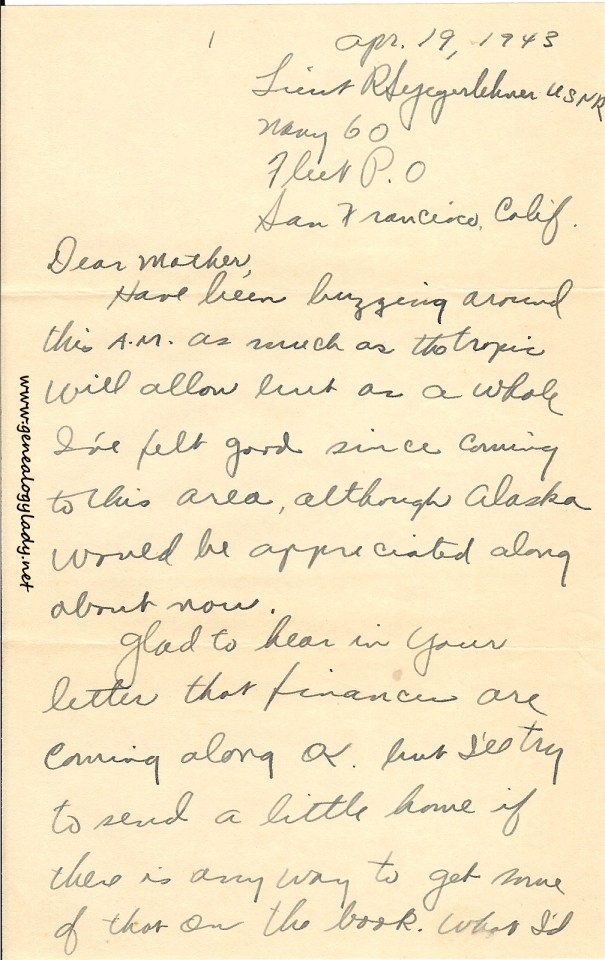 1
Apr. 19, 1943
Lieut R S Yegerlehner USNR
Navy 60
Fleet P.O
San Francisco, Calif.
Dear Mother,
Have been buzzing around
this A.M. as much as the tropic
will allow but as a whole
I've felt good since coming
to this area, although Alaska
would be appreciated along
about now.
Glad to hear in your
letter that finances are
coming along OK. but I'll try
to send a little home if
there is any way to get some
of that on the book. What I'd
www.genealogylady.net